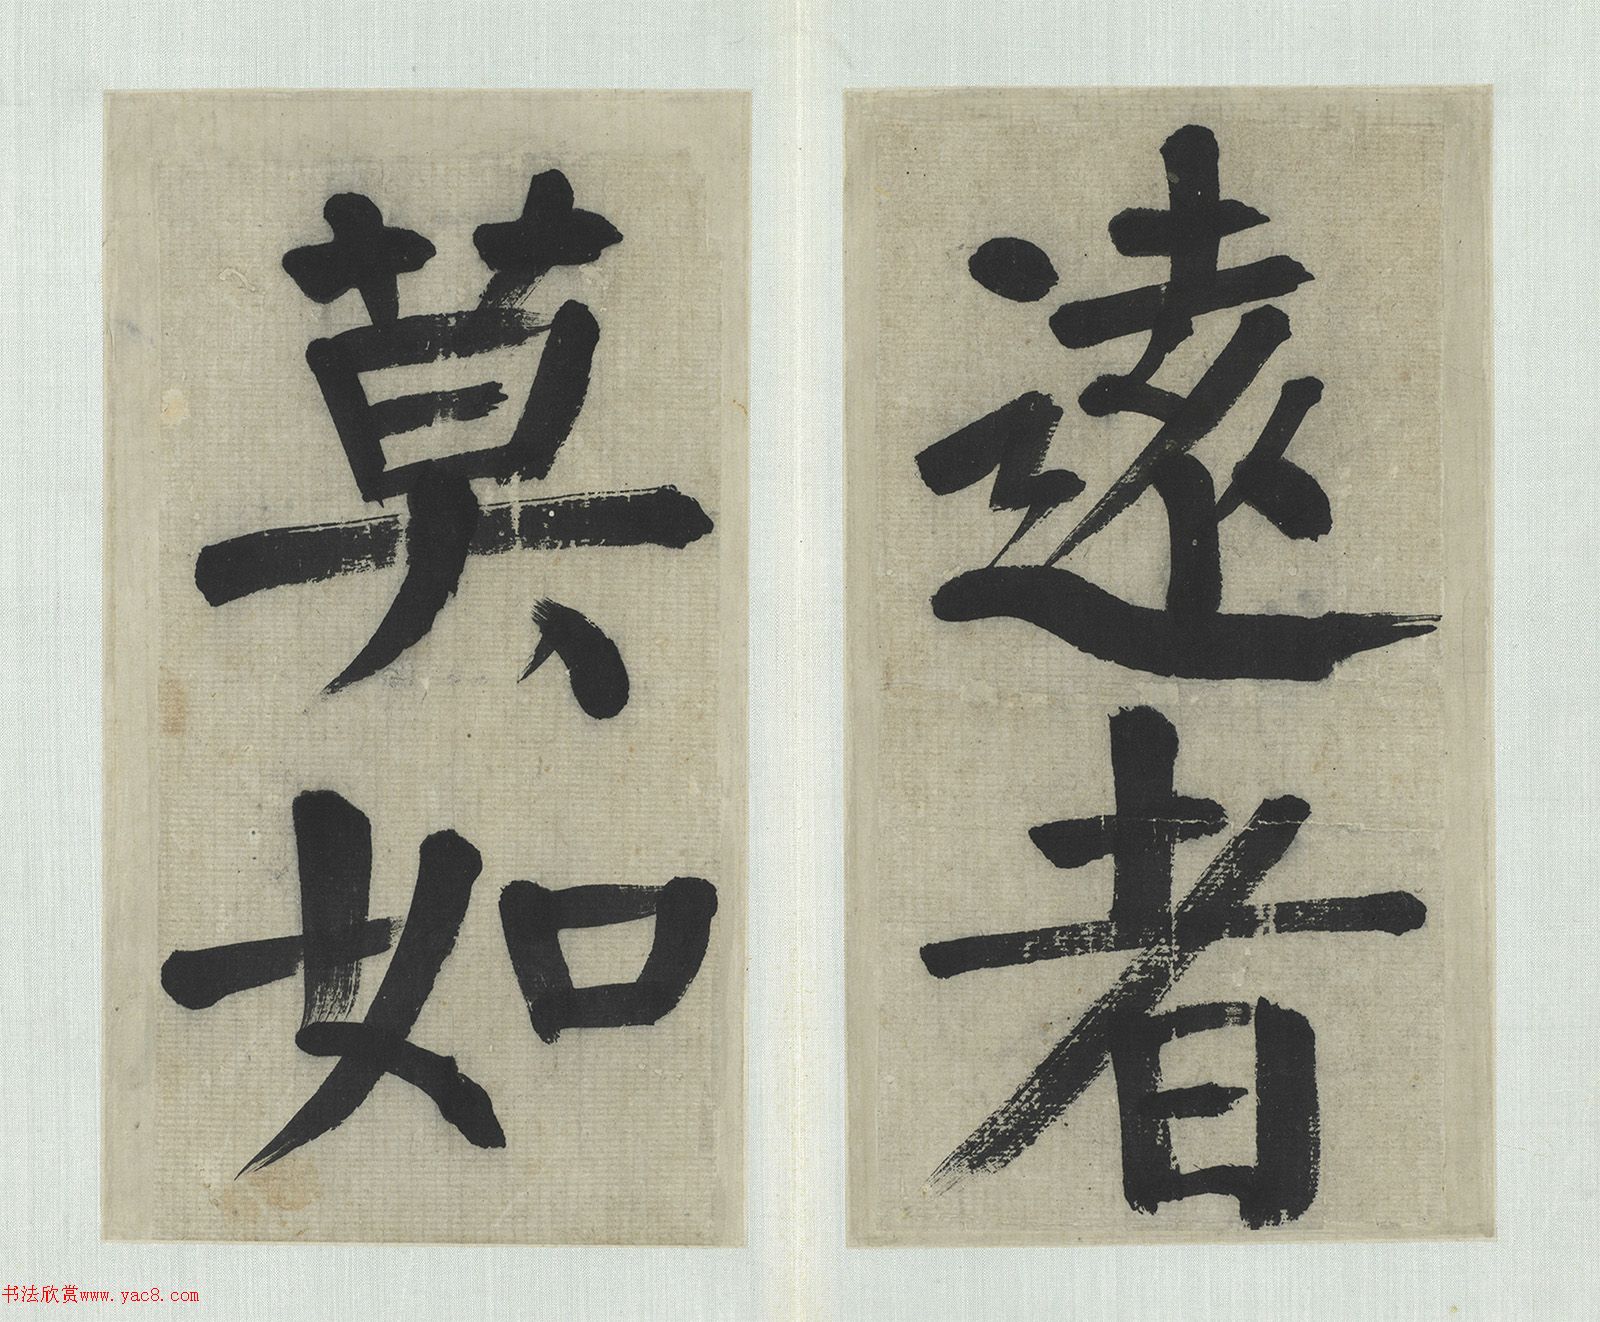 遠者
莫如
书法欣赏www.yac8.com